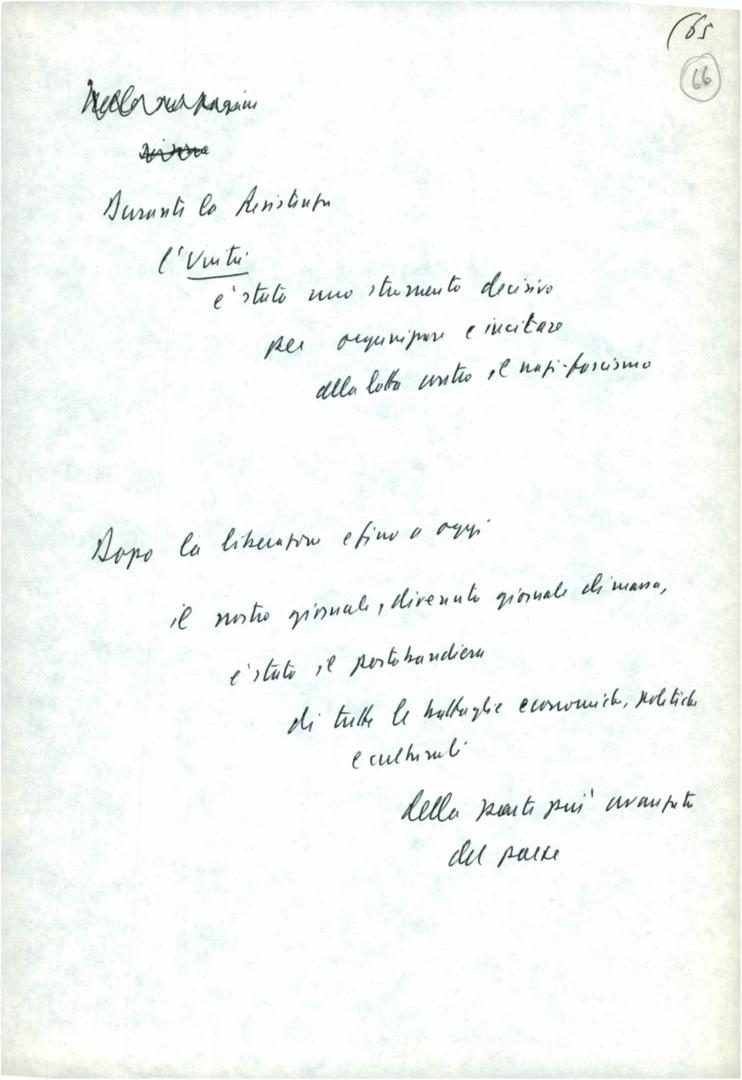 65
66
Durante la Resistenza
l'Unità
è stato uno strumento decisivo
per organizzare e incitare
alla lotta contro il nazi-fascismo
Dopo la liberazione e fino a oggi
il nostro giornale, divenuto giornale di massa,
è stato il portabandiera
di tutte le battaglie economiche, politiche
e culturali
della parte più avanzata
del paese